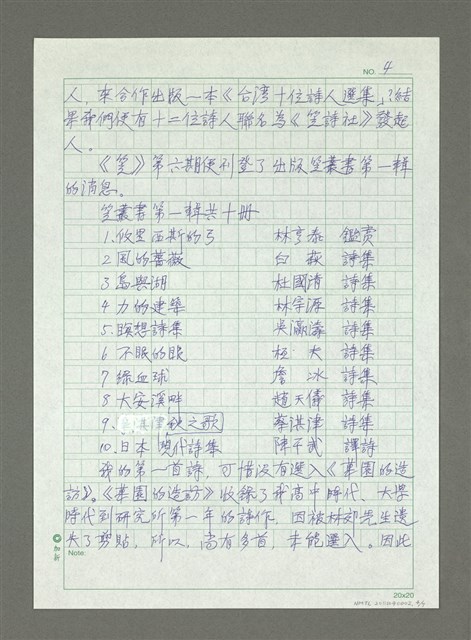 NO. 4
人，來合作出版一本《台湾十位詩人選集》，結
果我們便有十二位詩人聯名為《笠詩社》發起
人。
《笠》第六期便刊登了出版笠叢書第一輯
的消息。
笠叢書第一輯共十冊
1.攸里西斯的弓 林亨泰 鑑賞
2 風的薔薇 白萩 詩集
3 島與湖 杜國清 詩集
4 力的建築 林宗源 詩集
5.瞑想詩集 吳瀛濤 詩集
6 不眠的眼 桓夫 詩集
7 綠血球 詹冰 詩集
8 大安溪畔 趙天儀 詩集
9. 秋之歌 蔡淇津 詩集
10.日本現代詩集 陳千武 譯詩
我的第一首詩，可惜沒有選入《菓園的造
訪》。《菓園的造訪》收錄了我高中時代、大學
時代到研究所第一年的詩作，因被林郊先生遺
失了剪貼，所以，尚有多首，未能選入。因此
Note
20x20